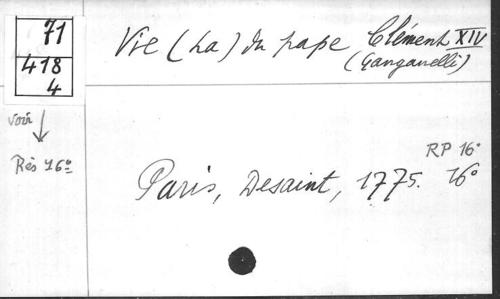 71
418
4
voir
Rés 16º
Vie (La) du pape Clément XIV
(Ganganelli)
RP 16º
Paris, Desaint, 1775. 16º